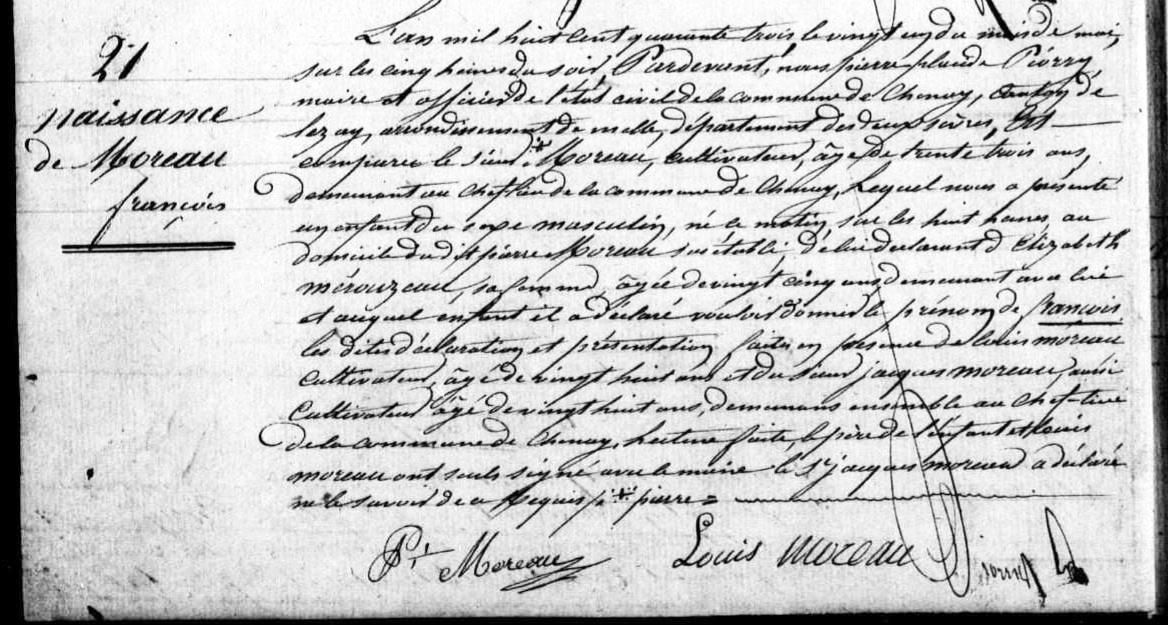 21
naissance
de Moreau
françois
L'an mil huit cent quarante trois le vingt un du mois de mai,
sur les cinq heures du soir, Pardevant, nous pierre placide Piorry
maire et officier de l'état civil de la commune de Chenay, canton de
lezay, arrondissement de melle, département des deux sèvres, Est
comparu le sieur * Moreau, cultivateur, âgé de trente trois ans,
demeurant au Chef lieu de la commune de Chenay, Lequel nous a présenté
un enfant du sexe masculin, né le matin, sur les huit heures au
domicile du dit pierre Moreau sus établi, de lui declarant d'Elizabeth
mérouzeau, sa femme, âgée de vingt cinq ans demeurant avec lui
et auquel enfant il a déclaré vouloir donner le prénom de françois
les dites déclaration et présentation faites en présence de louis moreau
cultivateur, âgé de vingt huit ans et du sieur jacques moreau, aussi
Cultivateur âgé de vingt huit ans, demeurans ensemble au Chef-lieu
de la commune de Chenay, lecture faite, le père de l'enfant et Louis
moreau ont seuls signé avec le maire le Sr jacques moreau a déclaré
ne le savoir de ce Requis / * pierre =
Pr Moreau Louis moreau Piorry